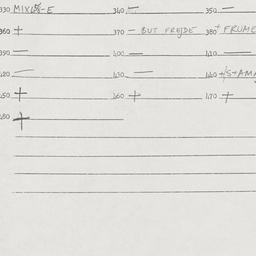 330 MIX 340 – 350 –
360 + 370 – BUT FREJDE 380 + FRUME
390 – 400 – 410 –
420 – 430 – 440 +
450 + 460 + 470 +
480 +